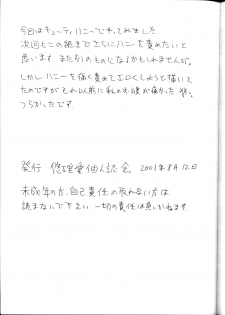 今回はキューティハニーでやってみました
次回もこの続きでさらにハニーを責めたいと
思います。また別のものになるかもしれませんが。
しかしハニーを痛く責めてエロくしようと描いて
たのですがそれ以前に私のお腹が痛かった
つらかったです。
発行 悠理愛個人誌会 2001年8月12日
未成年の方、自己責任の取れない方は
読まないで下さい。一切の責任は負いかねます。